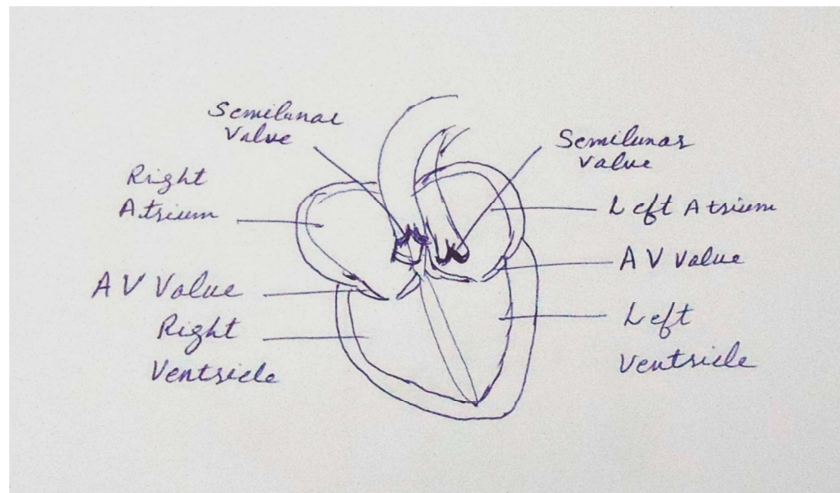 Semilunar
Value
Semilunar
Value
Right
Atrium
Left Atrium
AV Value
AV Value
Right
Ventricle
Left
Ventricle